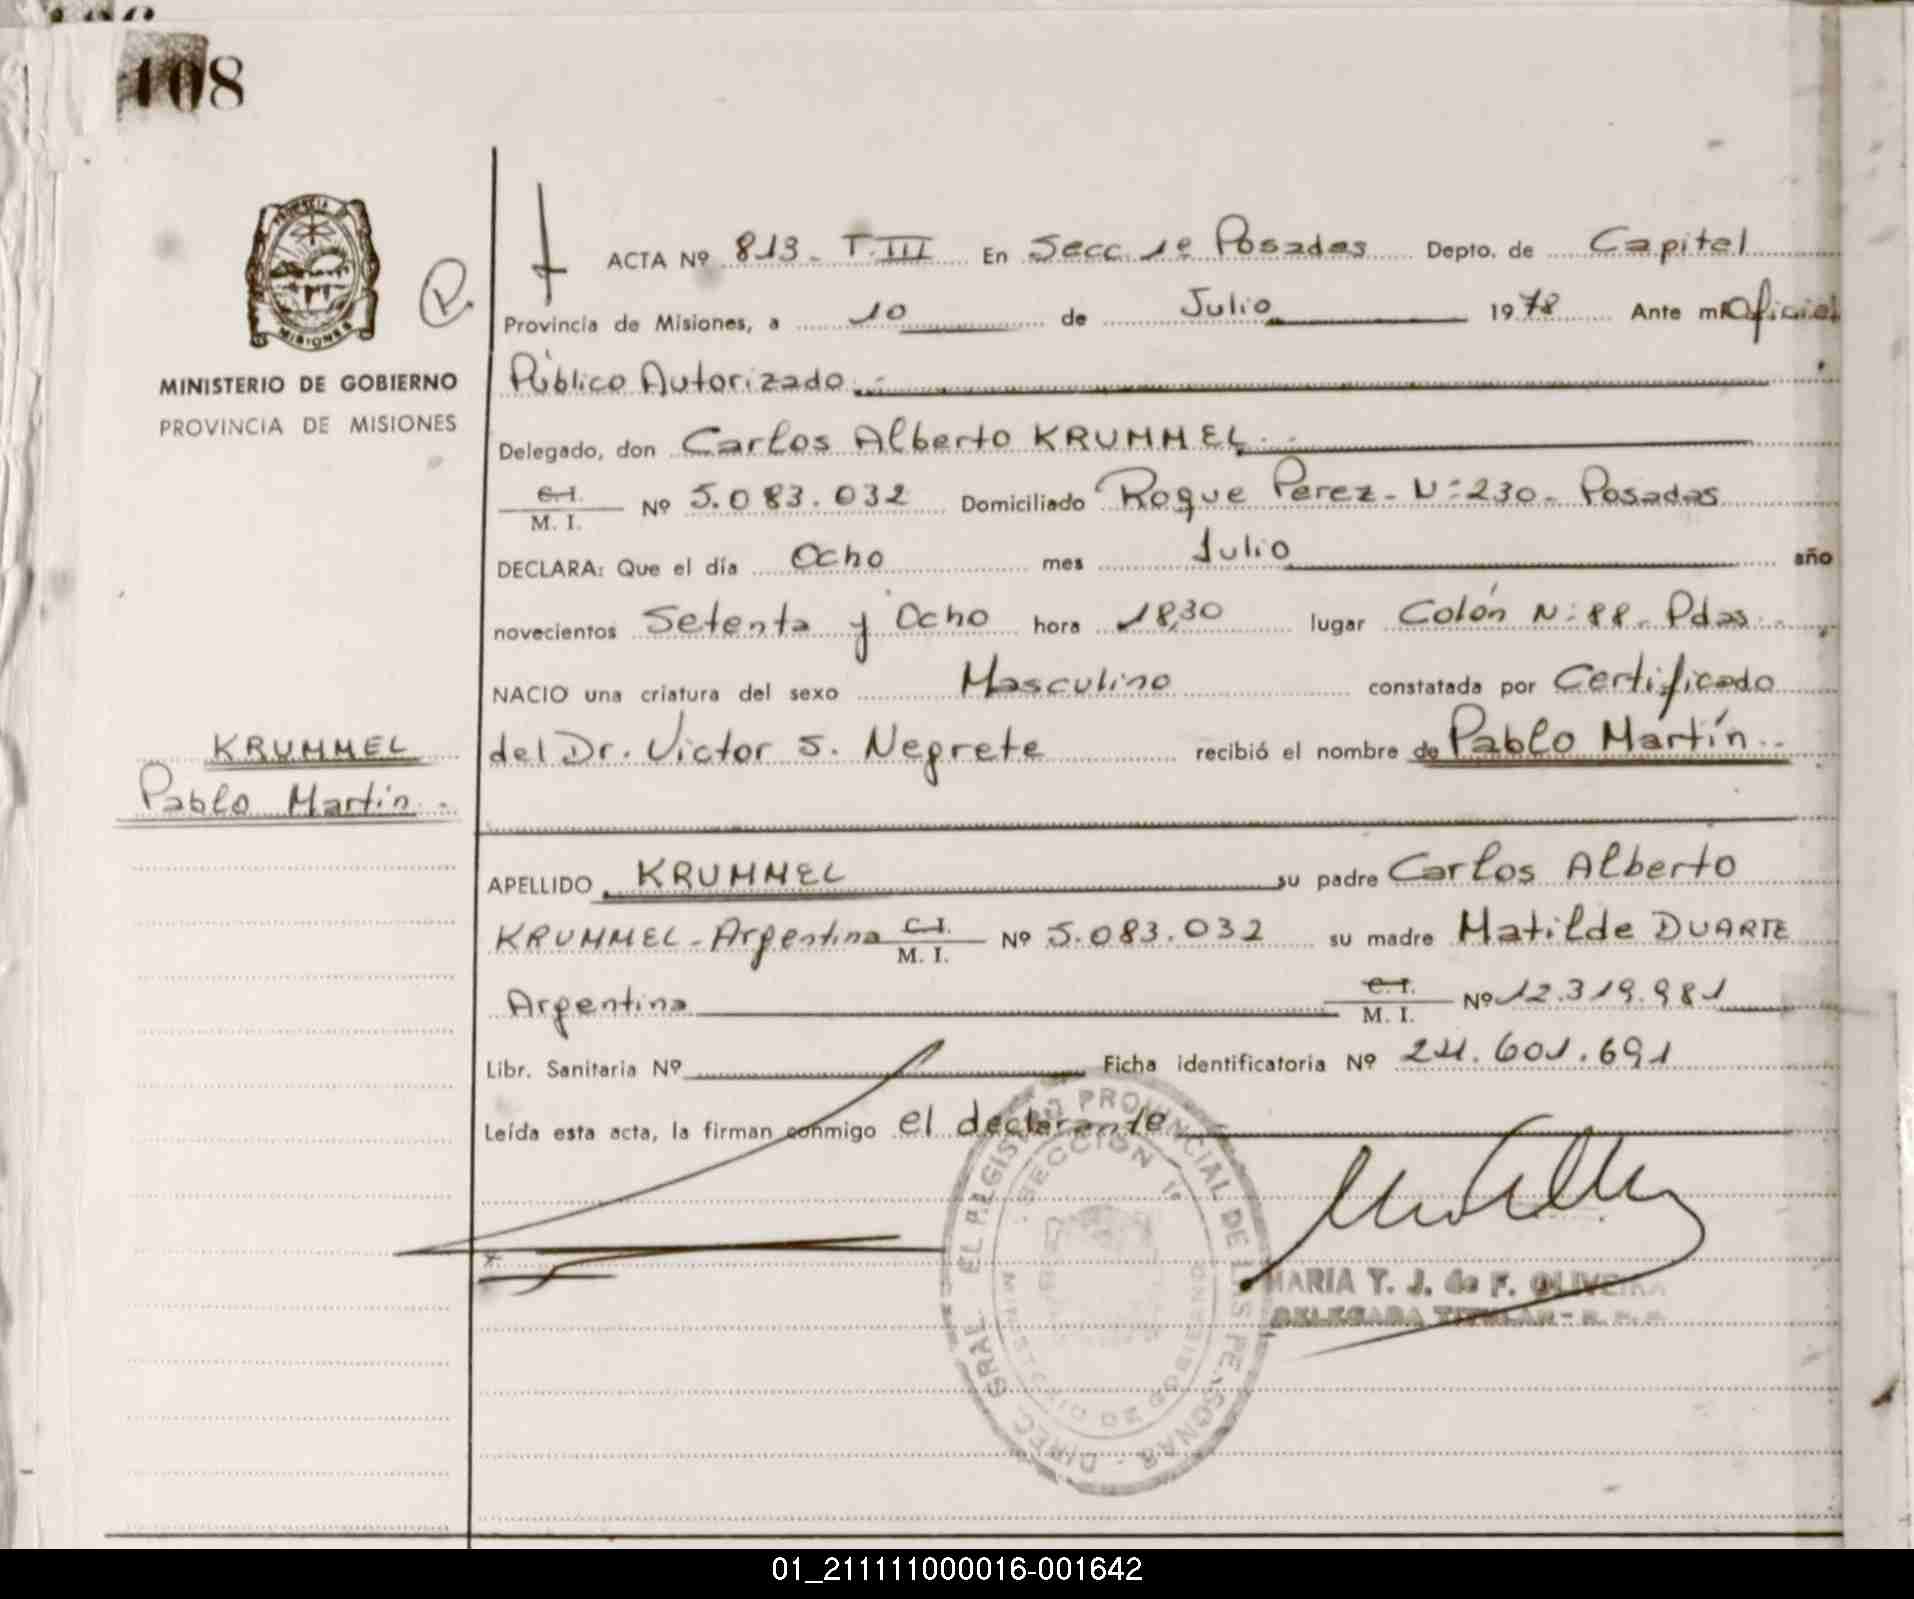 108
PROVINCIA DE
MISIONES
MINISTERIO DE GOBIERNO
PROVINCIA DE MISIONES
R
ACTA Nº 813 - T. III En Secc. 1º Posadas Depto. de Capital
Provincia de Misiones, a 10 de Julio 1978 Ante mi Oficial
Público Autorizado.-
Delegado, don Carlos Alberto KRUMMEL.-
C.I. M. I. Nº 5.083.032 Domiciliado Roque Perez - Nº 230 - Posadas
DECLARA: Que el día Ocho mes Julio año
novecientos Setenta y Ocho hora 18,30 lugar Colón Nº 88 - Pdas.
NACIO una criatura del sexo Masculino constatada por Certificado
del Dr. Victor S. Negrete recibió el nombre de Pablo Martín.-
KRUMMEL
Pablo Martín.-
APELLIDO KRUMMEL su padre Carlos Alberto
KRUMMEL - Argentina C.I. M. I. Nº 5.083.032 su madre Matilde DUARTE
Argentina C.I. M. I. Nº 12.319.981
Libr. Sanitaria Nº Ficha identificatoria Nº 24.601.691
Leída esta acta, la firman conmigo el declarante
DIREC. GRAL. REGISTRO PROVINCIAL DE LAS PERSONAS
SECCION 1º
MINISTERIO DE GOBIERNO
MARIA T. J. de F. OLIVEIRA
DELEGADA TITULAR - R. P. P.
01_211111000016-001642